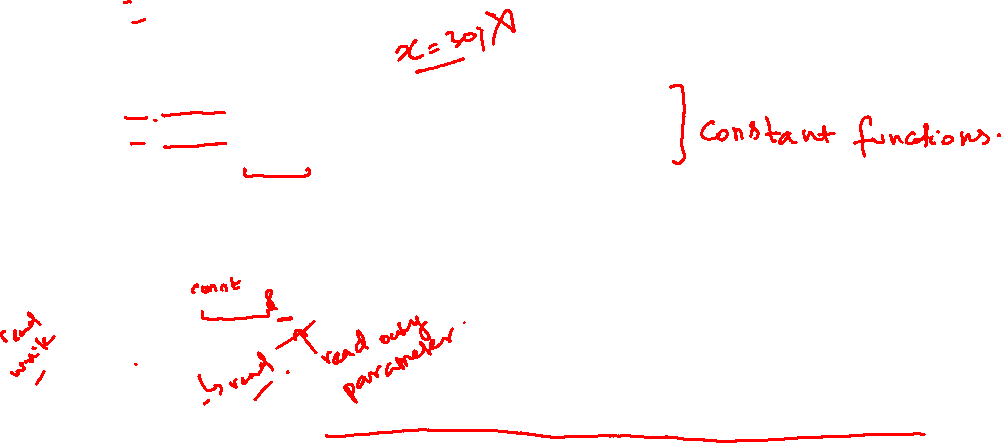 x=30;X
constant functions.
const &
read
write
read
read only
parameter.